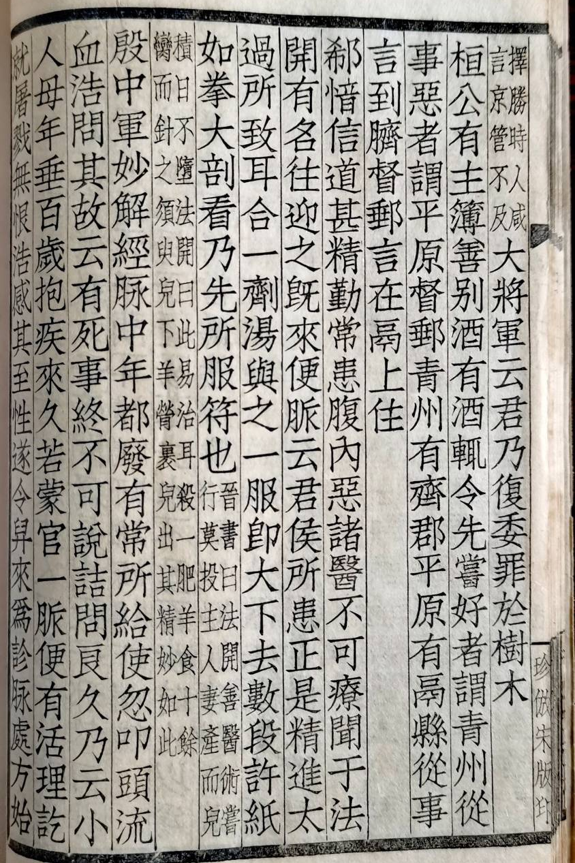 擇勝時人咸
言京管不及
大將軍云君乃復委罪於樹木
桓公有主簿善别酒有酒輒令先嘗好者謂青州從
事惡者謂平原督郵青州有齊郡平原有鬲縣從事
言到臍督郵言在鬲上住
郗愔信道甚精勤常患腹内惡諸醫不可療聞于法
開有名往迎之旣來便脈云君侯所患正是精進太
過所致耳合一劑湯與之一服卽大下去數段許紙
如拳大剖看乃先所服符也
晉書曰法開善醫術嘗
行莫投主人妻產而兒
積日不墮法開曰此易治耳殺一肥羊食十餘
臠而針之須臾兒下羊膋裹兒出其精妙如此
殷中軍妙解經脉中年都廢有常所給使忽叩頭流
血浩問其故云有死事終不可說詰問良久乃云小
人母年垂百歲抱疾來久若蒙官一脈便有活理訖
就屠戮無恨浩感其至性遂令舁來爲診脉處方始
珍倣宋版印